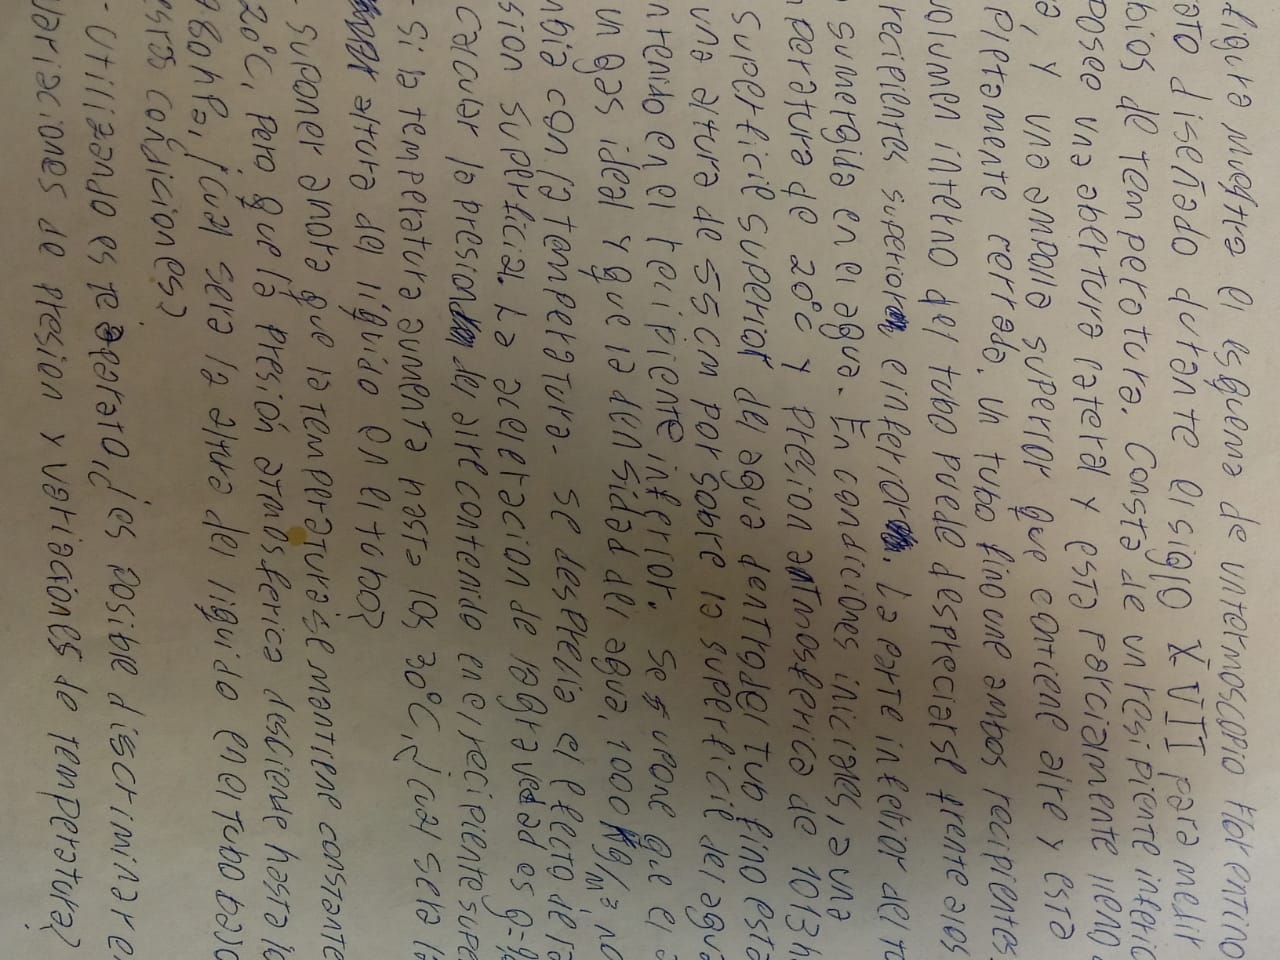 figura muestra el esquema de un termoscopio florentino
ato diseñado durante el siglo XVII para medir
bios de temperatura. Consta de un resipiente inferio
posee una abertura lateral y esta parcialmente lleno
a, y una ampolla superior que contiene aire y esta
pletamente cerrada. un tubo fino une ambos recipientes.
volumen interno del tubo puede despreciarse frente a los
recipientes superior e inferior. La parte inferior del tu
sumergida en el agua. En condiciones iniciales, a una
peratura de 20°C y presion atmosferica de 1013h
superficie superior del agua dentro del tubo fino esta
una altura de 55cm por sobre la superficie del agua
ntenido en el recipiente inferior. Se supone que el a
un gas ideal y que la densidad del agua, 1000 kg/m³ no
mbia con la temperatura. Se desprecia el efecto de la
sion superficial. La aceleracion de la gravedad es g=9
Calcular la presion del aire contenido en el recipiente supe
- Si la temperatura aumenta hasta los 30°C, ¿cual sera la
altura del liquido en el tubo?
- Suponer ahora que la temperatura se mantiene constante
20°C, pero que la presión atmosferica desciende hasta lo
980hPa, ¿cual sera la altura del liquido en el tubo bajo
estas condiciones?
- Utilizando este aparato, ¿es posible discriminar e
variaciones de presion y variaciones de temperatura?